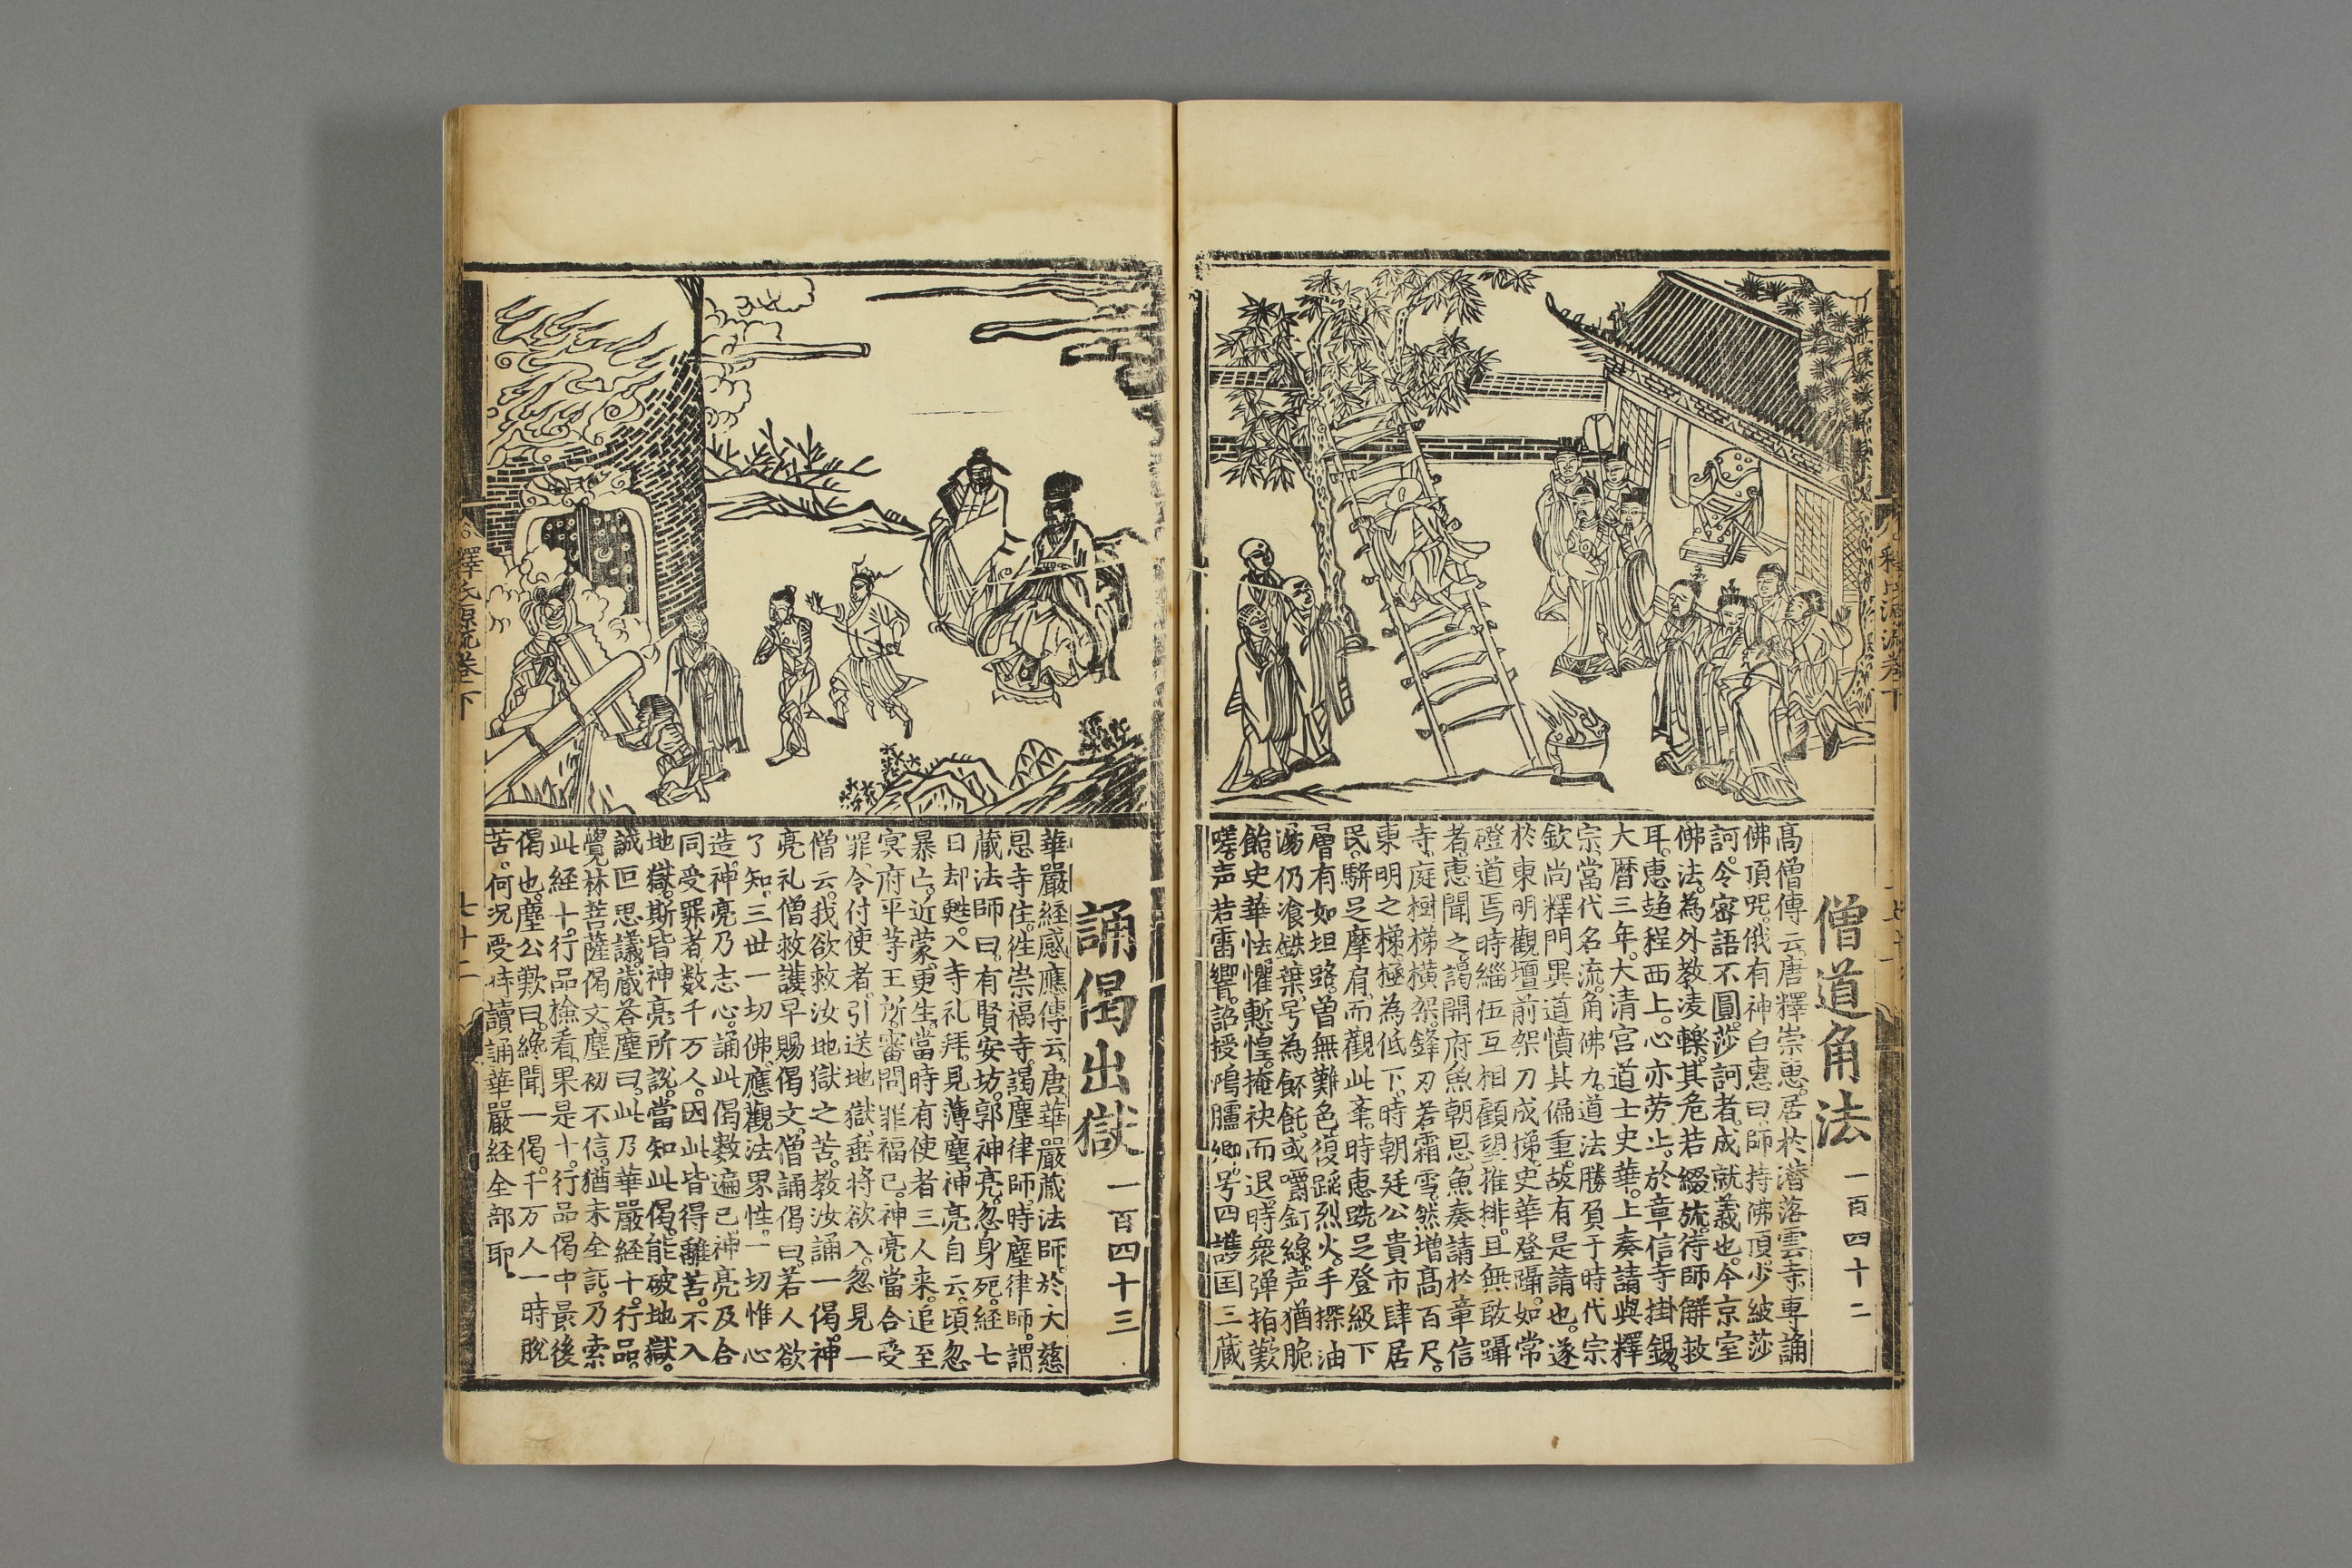 僧道角法 一百四十二
高僧傳云。唐釋崇惠。居於潛落雲寺。專誦
佛頂咒。俄有神白惠曰。師持佛頂。少綾莎
訶。令密語不圓。莎訶者。成就義也。今京室
佛法。為外教凌轢。其危若綴旒。待師解救
耳。惠趍程西上。心亦劳止。於章信寺掛錫。
大暦三年。大清宮道士史華。上奏請與釋
宗當代名流。角佛力道法勝負于時代宗
欽尚釋門異道憤其偏重。故有是請也。遂
於東明觀壇前架刀成梯。史華登躡。如常
磴道焉時緇伍互相顧望推排。且無敢躡
者。惠聞之。謁開府魚朝恩。魚奏請於章信
寺。庭樹梯橫架。鋒刃若霜雪。然增高百尺。
東明之梯。極為低下。時朝廷公貴市肆居
民。騈足摩肩。而觀此舉。時惠跣足登級下
層有如坦路。曾無難色。復蹈烈火。手探油
湯仍飡鉄葉。号為餺飥。或嚼釘線。声猶脆
飴。史華怯懼慙惶。掩袂而退。時衆弹指歎
嗟。声若雷響。詔授鴻臚卿。号四護国三蔵
誦偈出獄 一百四十三
華嚴経感應傳云。唐華嚴蔵法師。於大慈
恩寺住。徃崇福寺。謁塵律師。時塵律師。謂
蔵法師曰。有賢安坊。郭神亮。忽身死。経七
日却甦。入寺礼拜。見薄塵。神亮自云。頃忽
暴亡。近蒙更生。當時有使者三人来。追至
冥府平等王所。審問罪福已。神亮當合受
罪。令付使者。引送地獄。垂將欲入。忽見一
僧云。我欲救汝地獄之苦。教汝誦一偈。神
亮礼僧救護。早賜偈文。僧誦偈曰。若人欲
了知。三世一切佛。應觀法界性。一切惟心
造。神亮乃志心。誦此偈數遍已。神亮及合
同受罪者。数千万人。因此皆得離苦。不入
地獄。斯皆神亮所說。當知此偈。能破地獄。
誠叵思議。蔵荅塵曰。此乃華嚴経十。行品。
覺林菩薩偈文。塵初不信。猶未全託。乃索
此経十。行品撿看。果是十。行品偈中最後
偈也。塵公歎曰。纔聞一偈。千万人一時脫
苦。何况受持讀誦華嚴経全部耶。
釋氏源流卷下
七十二